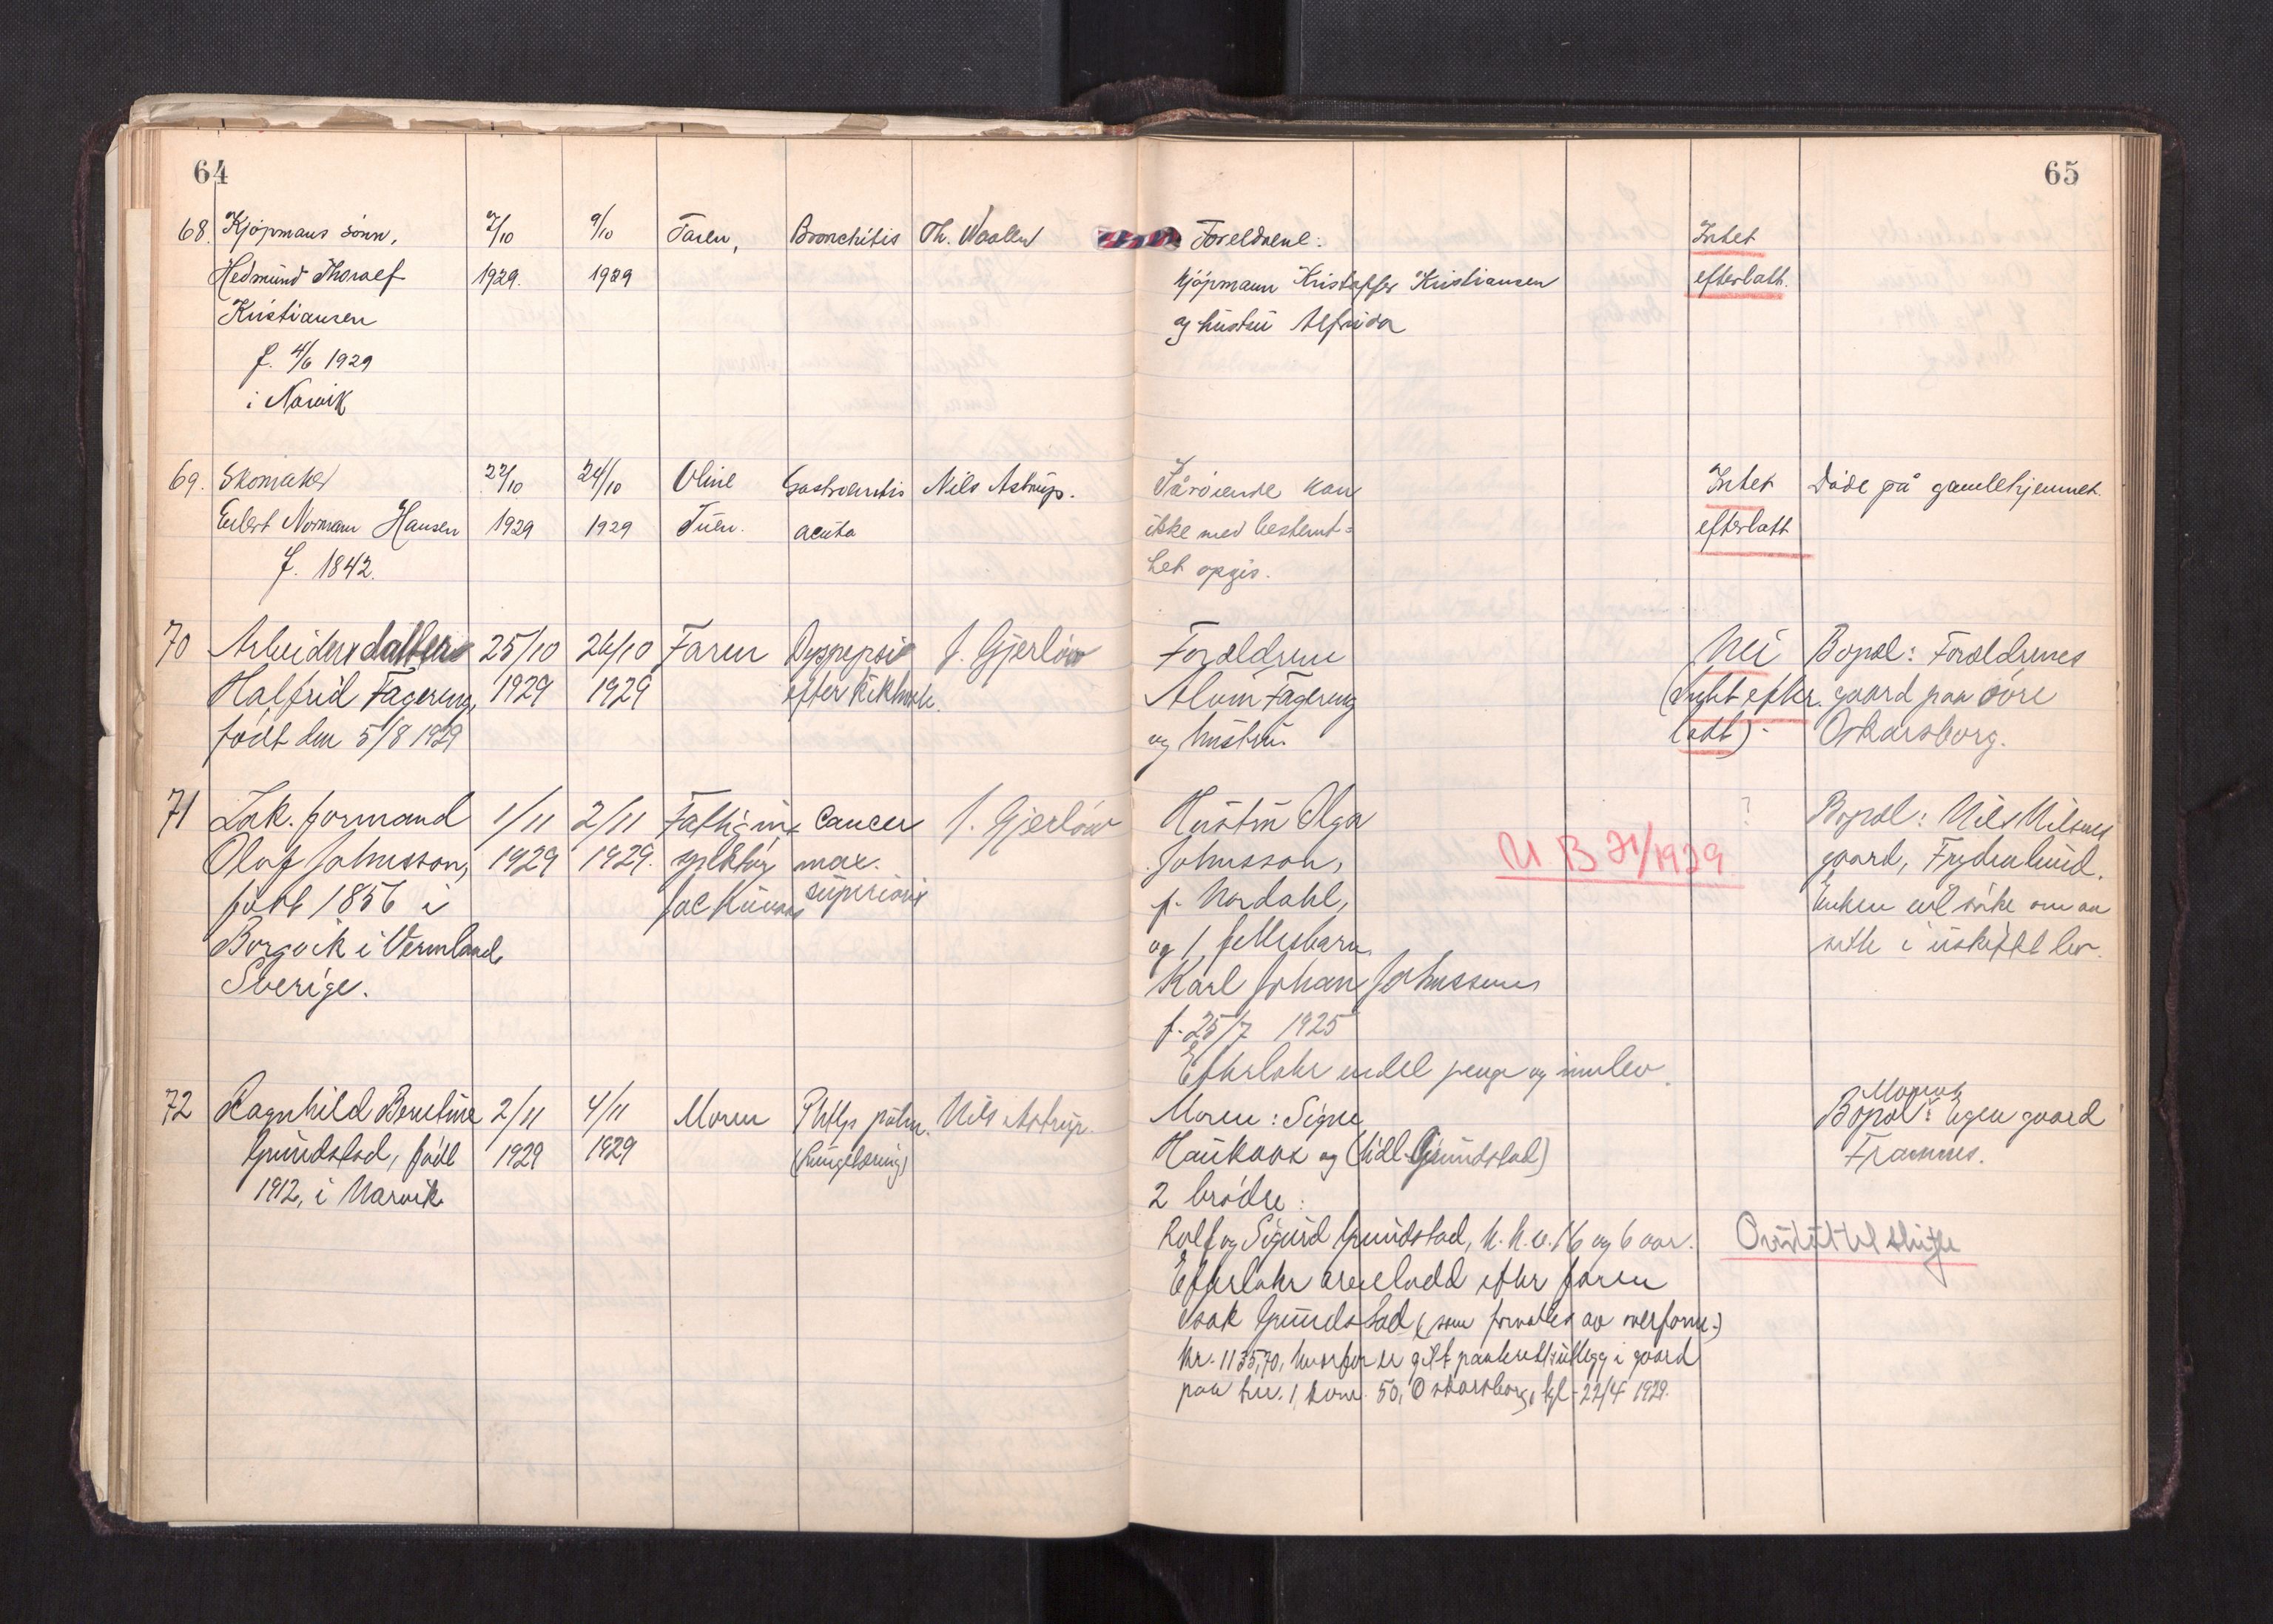 64
68. Kjøpmans sønn,
Hedmund Thoralf
Kristiansen
f. 4/6 1929
i Narvik
9/10
1929
Faren,
Bronchitis
Th. Waaler
69. Skomaker
Hansen
f. 1842.
22/10
1929
24/10
1929
Oline
Tuen.
Gastroenteritis
acuta
Nils Astrup.
70 Arbeiders datter
Halfrid Fagereng,
født den 5/8 1929
25/10
1929
26/10
1929
Faren
Dyspepsi
efter
J. Gjerløw
71
formand
Olaf Johnsson,
født 1856 i
Borgvik i Vermland
Sverige.
1/11
1929
2/11
1929.
Fattigin-
spektør
Cancer
max.
superioris
J. Gjerløw
72 Ragnhild Berntine
Grundstad, født
1912, i Narvik
2/11
1929
4/11
1929
Moren
Phtys pulm.
(lungetæring)
Nils Astrup.
65
Foreldrene:
kjøpmann Kristoffer Kristiansen
og hustru Alfrida
Intet
efterlatt.
kan
ikke med bestemt=
het opgis.
Intet
efterlatt
Døde på gamlehjemmet.
Forældrene
Fagereng
og hustru.
Nei
(Intet efter-
latt)
Bopæl: Forældrenes
gaard paa øvre
Oskarsborg.
Hustru Olga
Johnsson,
f. Nordahl,
og 1 fellesbarn
Karl Johan Johnssen
f. 25/7 1925
Efterlater endel penge og innbo.
U B 21/1929
?
Bopæl: Nils Nilsens
gaard, Frydenlund.
Enken vil søke om aa
sitte i uskiftet bo.
Moren: Signe
Haukaas og (tidl. Grundstad)
2 brødre:
Rolf og Sigurd Grundstad, h.h.v. 16 og 6 aar.
Efterlater arvelodd efter faren
Isak Grundstad (som forvaltes av overform.)
kr. 1135,70, hvorfor er gitt panterett utlegg i gaard
paa br. 1, kvar. 50, Oskarsborg, tgl. 22/4 1929.
Morens
Bopæl: Egen gaard
Framnes.